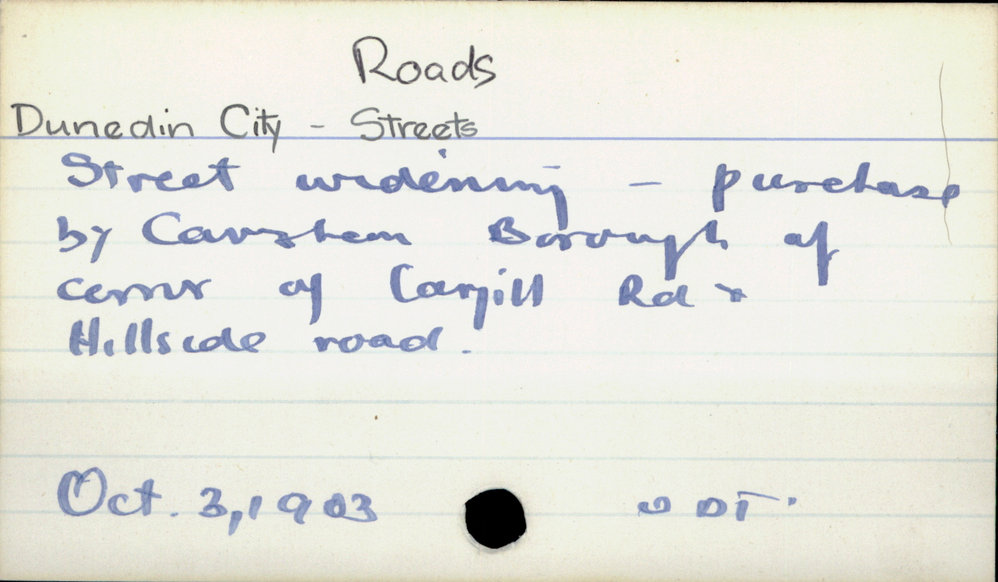 Roads
Dunedin City - Streets
Street widening - purchase
by Caversham Borough of
corner of Cargill Rd &
Hillside road.
Oct. 3, 1903 ODT.